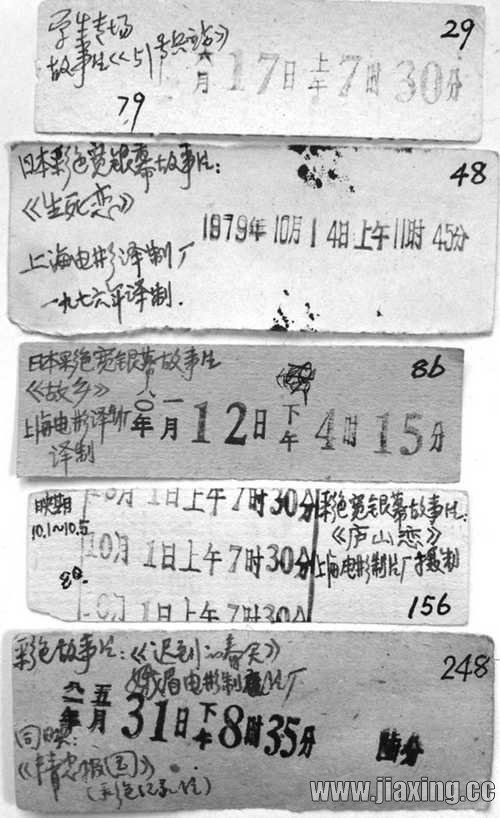 学生专场
故事片《51号兵站》
29
六月17日上午7时30分
79
日本彩色宽银幕故事片:
48
《生死恋》
1979年10月14日上午11时45分
上海电影译制厂
一九七六年译制.
日本彩色宽银幕故事片
86
《故乡》
八〇年一月12日下午4时15分
上海电影译制厂
译制
映期
10.1~10.5
80.
1日上午7时30分
10月1日上午7时30分
1日上午7时30分
彩色宽银幕故事片:
《庐山恋》
上海电影制片厂摄制
156
彩色故事片:《迟到的春天》
248
峨眉电影制片厂
八一年五月31日下午8时35分
同映:
《精忠报国》
(彩色纪录片)
www.jiaxing.cc